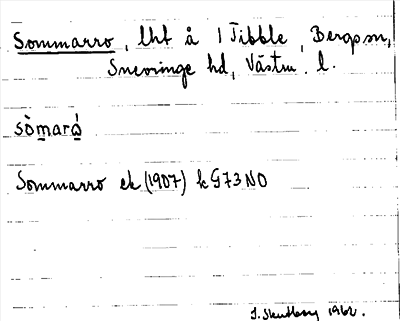 Sommarro, lht å 1 Tibble, Bergs sn,
Snevringe hd, Västm. l.
sòmaró
Sommarro ek (1907) k G73NO
1962.